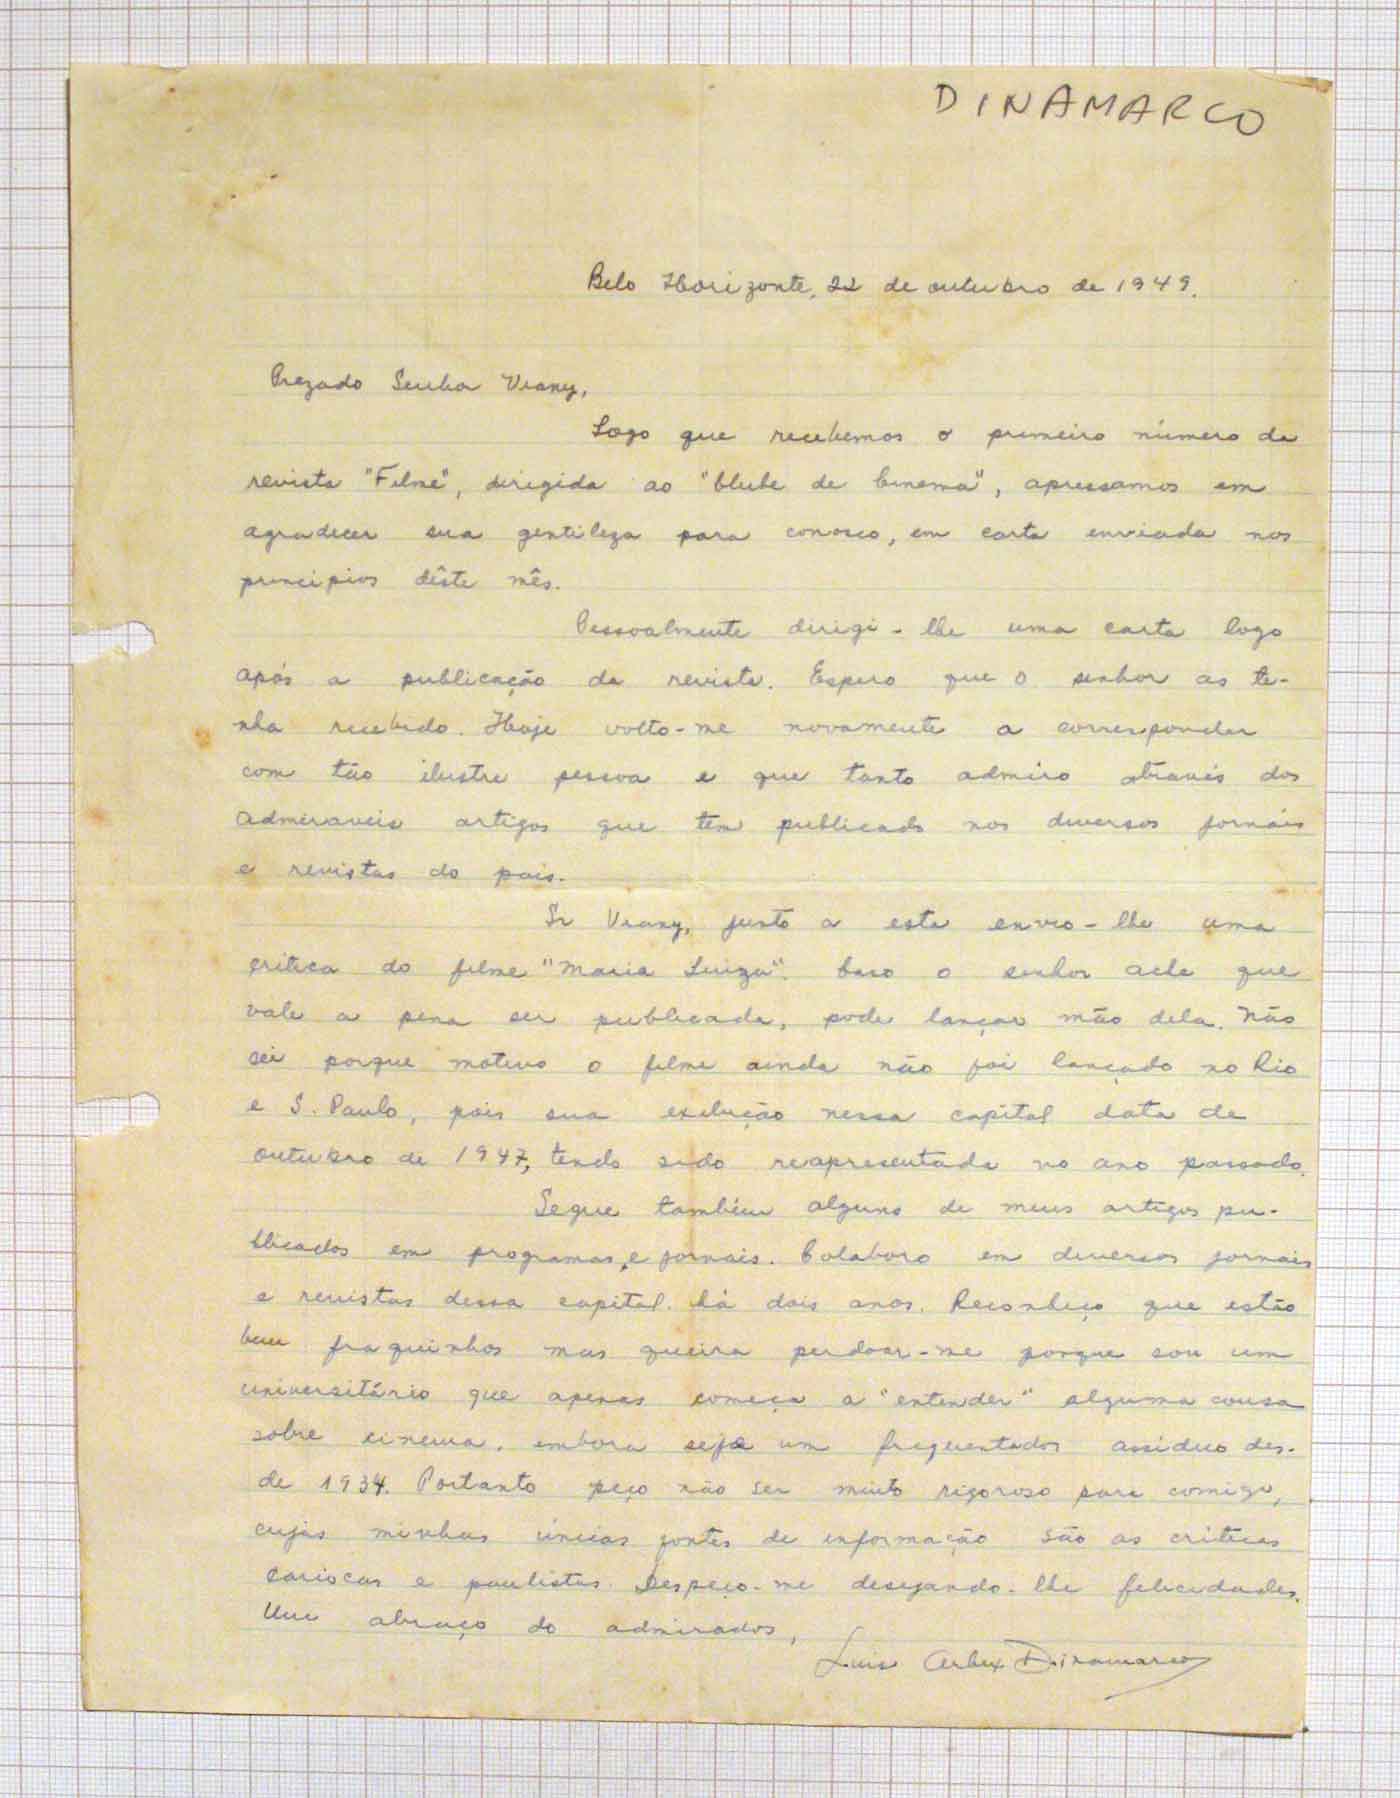 DINAMARCO
Belo Horizonte, 22 de outubro de 1949.
Prezado Senhor Viany,
Logo que recebemos o primeiro número da
revista "Filme", dirigida ao "Clube de Cinema", apressamos em
agradecer sua gentileza para conosco, em carta enviada nos
princípios dêste mês.
Pessoalmente dirigi-lhe uma carta logo
após a publicação da revista. Espero que o senhor as te-
nha recebido. Hoje volto-me novamente a corresponder
com tão ilustre pessoa e que tanto admiro através dos
admiraveis artigos que tem publicado nos diversos jornáis
e revistas do pais.
Sr Viany, junto a esta envio-lhe uma
crítica do filme "Maria Luiza". Caso o senhor ache que
vale a pena ser publicada, pode lançar mão dela. Não
sei porque motivo o filme ainda não foi lançado no Rio
e S. Paulo, pois sua exibição nessa capital data de
outubro de 1947, tendo sido reapresentada no ano passado.
Segue também alguns de meus artigos pu-
blicados em programas, e jornais. Colaboro em diversos jornais
e revistas dessa capital há dois anos. Reconheço que estão
bem fraquinhos mas queira perdoar-me porque sou um
universitário que apenas começa a "entender" alguma cousa
sobre cinema, embora seja um frequentador assíduo des-
de 1934. Portanto peço não ser muito rigoroso para comigo,
cujas minhas únicas fontes de informação são as críticas
cariocas e paulistas. Despeço-me desejando-lhe felicidades.
Um abraço do admirador,
Luis Arbex Dinamarco